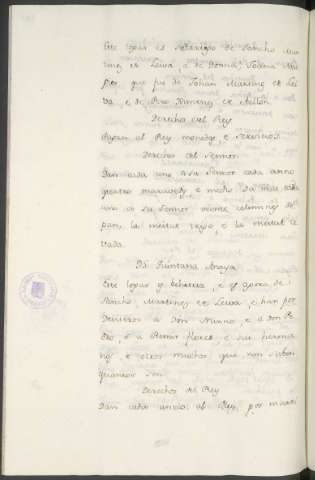 Este logar es solariego de Sancho Mar
tinez de Leiva, e de Donna
fier que fue de Johan Martinez de Lei
va, e de Pero Ximenez de
Derechos del Rey
Pagan al Rey monedas e servicios.
Derechos del Sennor
Dan cada uno a su Sennor cada anno
quatro maravedis e medio. Dan mas cada
uno a su Sennor nueve celemines de
pan, la meitat trigo, e la meitat ce
vada.
De Quintana Anaya
Este logar es behetria, e es agora de
Sancho Martinez de Leiva, e han por
Deviseros a Don Nunno, e a Don Pe
dro, e a Ramir Florez e sus herma
nos, e otros muchos que non saben
quantos son.
Derechos del Rey
Dan cada anno al Rey, por marti